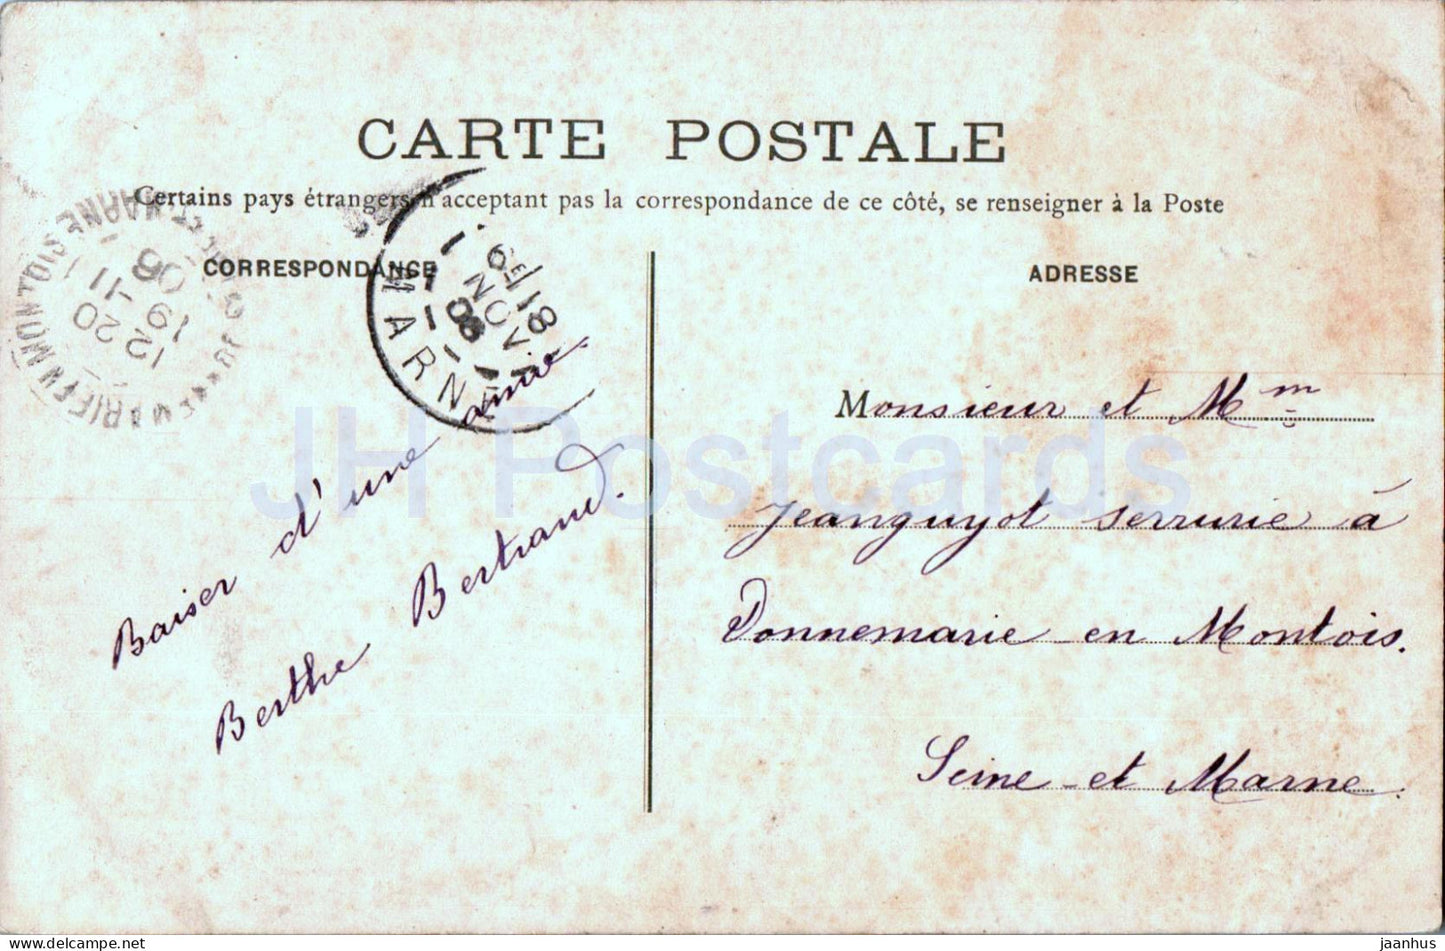 CARTE POSTALE
Certains pays étrangers n'acceptant pas la correspondance de ce côté, se renseigner à la Poste
CORRESPONDANCE
ADRESSE
Baiser d'une amie.
Berthe Bertrand.
Monsieur et Mm
Jeanguyot serrurie à
Donnemarie en Montois.
Seine et Marne.
MARNE
6E 18
NOV
08
12 20
19 -11
08
JH Postcards
delcampe.net
jaanhus